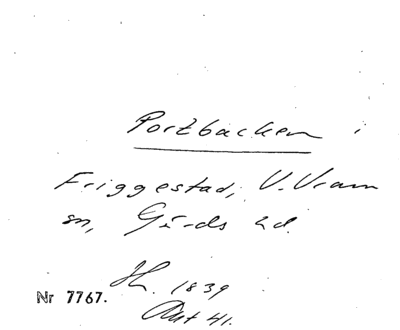 Portbacken i
Friggestad, V. Vram
sn, Gärds hd.
H. 1839
Akt 41.
Nr 7767.